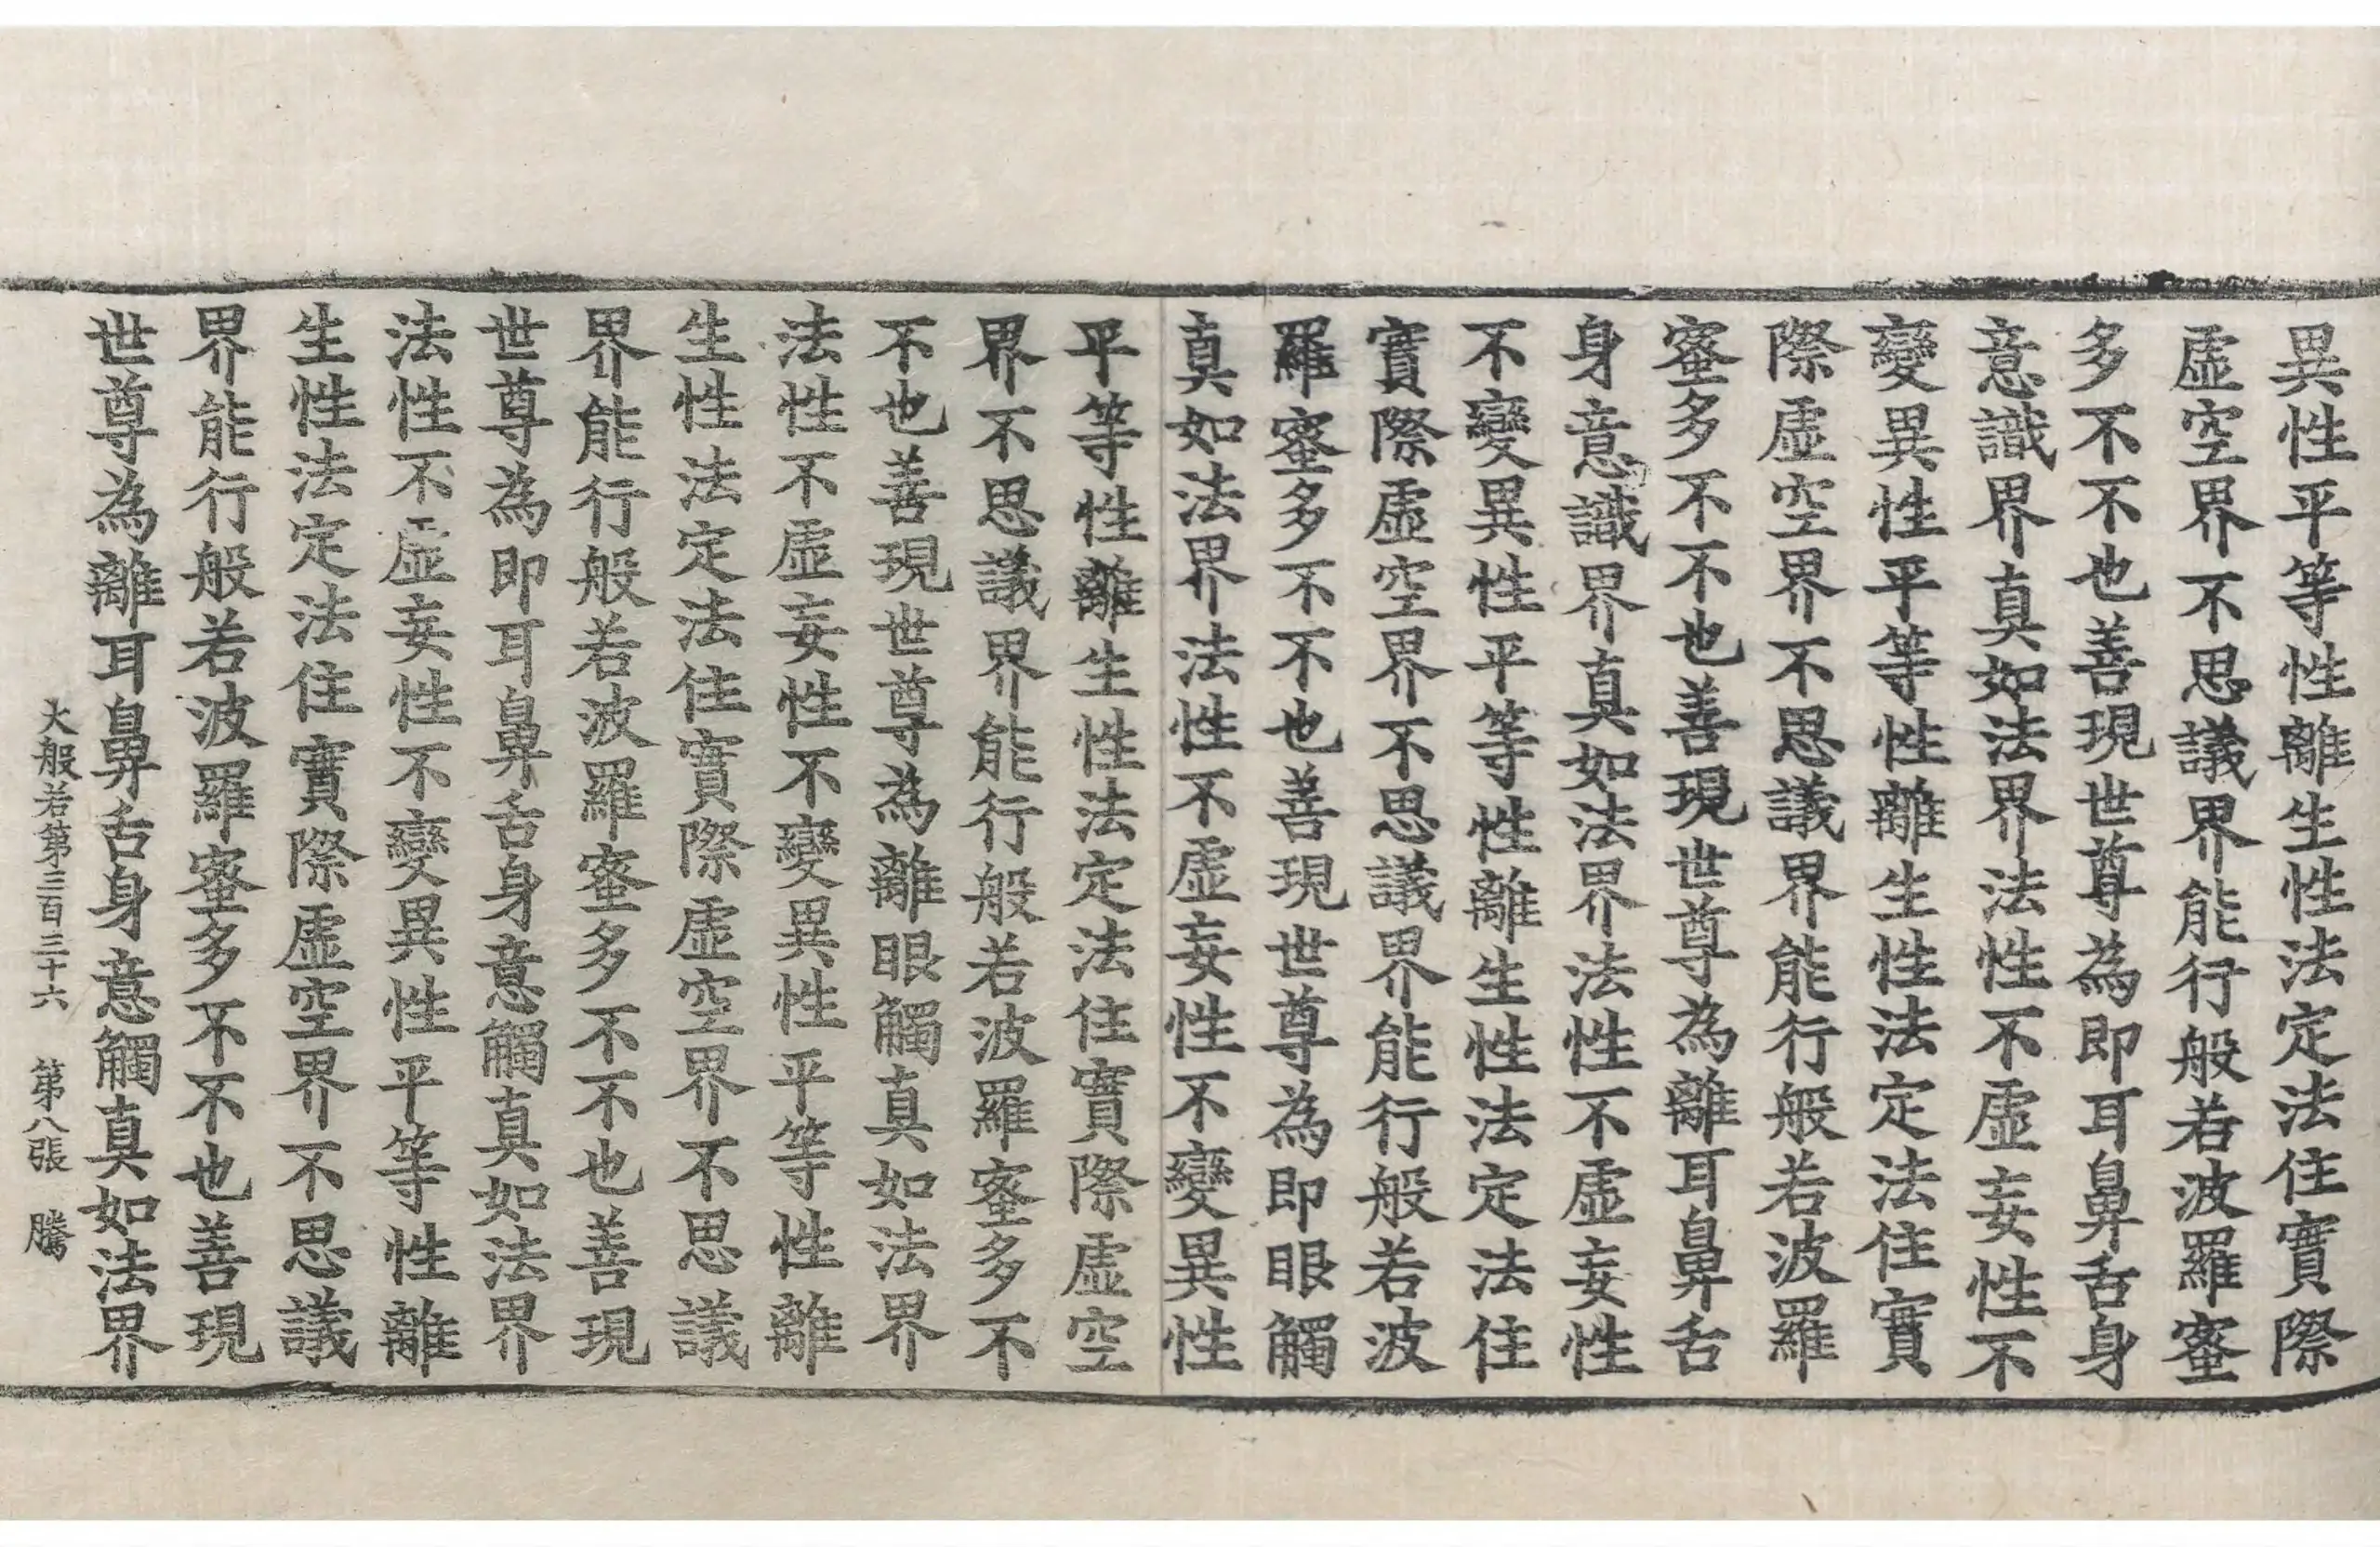 異性平等性離生性法定法住實際
虛空界不思議界能行般若波羅蜜
多不不也善現世尊為即耳鼻舌身
意識界真如法界法性不虛妄性不
變異性平等性離生性法定法住實
際虛空界不思議界能行般若波羅
蜜多不不也善現世尊為離耳鼻舌
身意識界真如法界法性不虛妄性
不變異性平等性離生性法定法住
實際虛空界不思議界能行般若波
羅蜜多不不也善現世尊為即眼觸
真如法界法性不虛妄性不變異性
平等性離生性法定法住實際虛空
界不思議界能行般若波羅蜜多不
不也善現世尊為離眼觸真如法界
法性不虛妄性不變異性平等性離
生性法定法住實際虛空界不思議
界能行般若波羅蜜多不不也善現
世尊為即耳鼻舌身意觸真如法界
法性不虛妄性不變異性平等性離
生性法定法住實際虛空界不思議
界能行般若波羅蜜多不不也善現
世尊為離耳鼻舌身意觸真如法界
大般若第三百三十六 第八張 騰